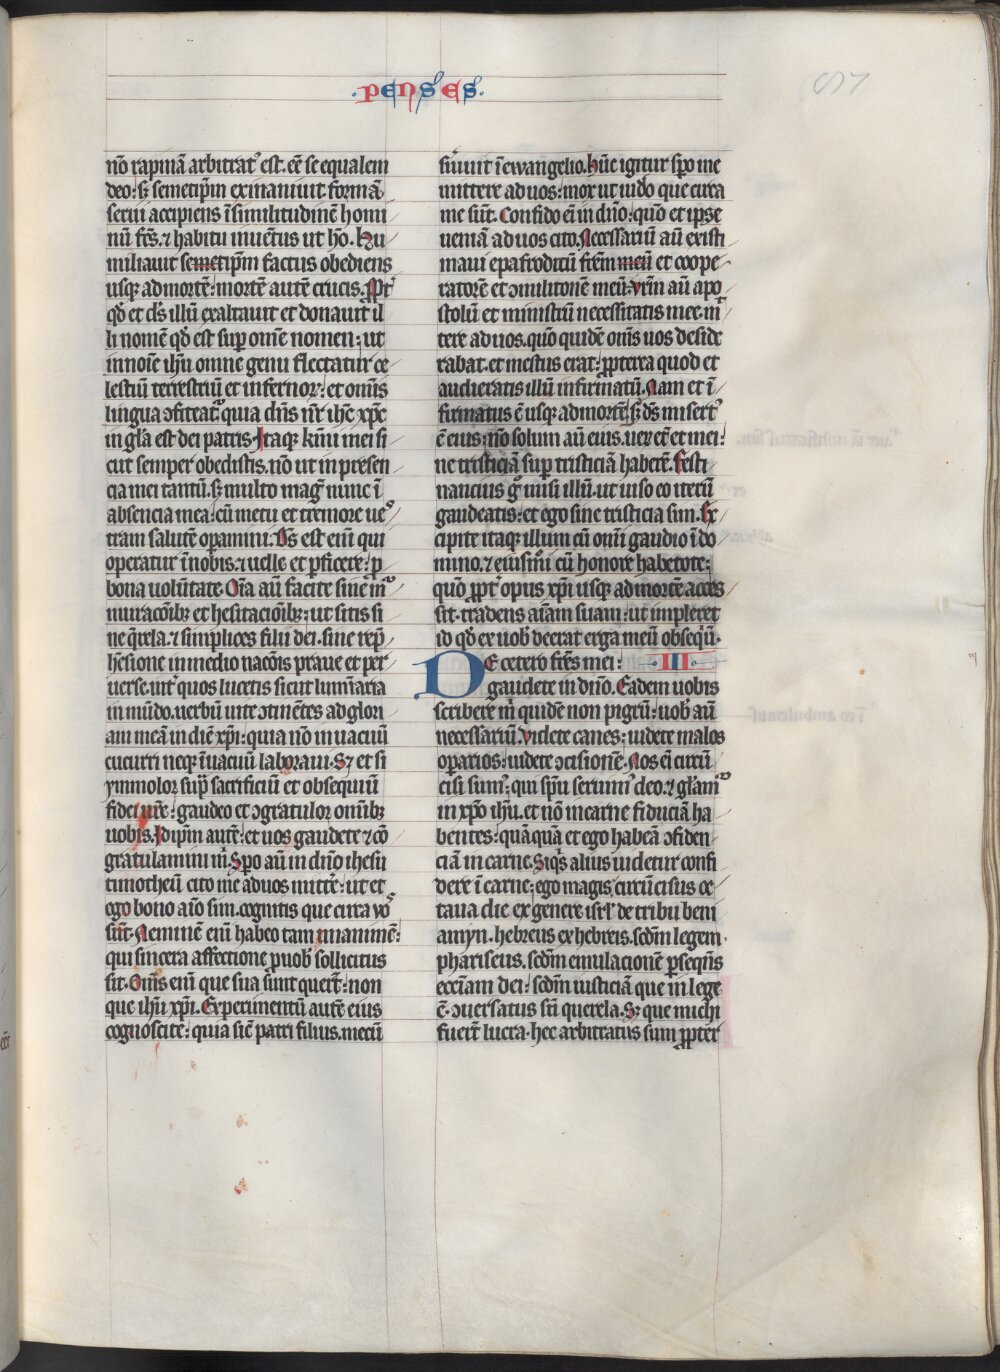 .penses.
nō rapinā arbitratꝰ est. eē se equalem
deo: sꝫ semetip̄m exinaniuit formā
serui accipiens ī similitudinē homi
nū fc̄s. ⁊ habitu inuētus ut hō. Hu
miliauit semetip̄m factus obediens
usqꝫ ad mortē: mortē autē crucis. ꝓpt̄
qḋ et ds̄ illū exaltauit et donauit il
li nomē qḋ est suꝑ omē nomen: ut
in noīe ih̄u omne genu flectatur ce
lestiū terrestriū et infernoꝝ: et omīs
lingua ↄfiteat̃ quia dn̄s nr̄ ih̄c xp̄c
in gl̄a est dei patris. Itaqꝫ km̄i mei si
cut semper obedistis. nō ut in presen
cia mei tantū. sꝫ multo mag̅ nunc ī
absencia mea: cū metu et tremore ueꝰ
tram salutē operamini. Ds̄ est eim̄ qui
operatur ī nobis: ⁊ uelle et ꝑficere: ꝓ
bona volūtate. Oīa aū facite sine m̄
muracōībꝫ et hesitacōībꝫ: ut sitis si
ne q̄rela. ⁊ simplices filii dei. sine rep̄
hēsione in medio nacōīs praue et per
uerse. int̄ quos lucetis sicut lumīaria
in mūdo. uerbū uite ↄtinētes ad glori
am meā in diē xp̄i: quia nō in uacuū
cucurri neqꝫ ī uacuū laboraui. Sꝫ et si
ymmolor supͣ sacrificiū et obsequiū
fidei ur̄e: gaudeo et ↄgratulor omībꝫ
uobis. Idip̄m autē: et uos gaudete ⁊ cō
gratulamini m̄. Spero aū in dn̄o ihesu
timotheū cito me ad uos mittē̄: ut et
ego bono aīo sim. cognitis que circa uoꝰ
sūt. Neminē eim̄ habeo tam unanimē:
qui sincera affectione ꝓ uob̄ sollicitus
sit. Omīs eim̄ que sua sunt querūt: non
que ih̄u xp̄i. Experimentū autē eius
cognoscite: quia sic̄ patri filius. mecū
s̄uiuit ī ewangelio. Hūc igitur spō me
mittere ad uos: mox ut uidō que circa
me sūt. Confido eī in dn̄o: qūo et ipse
ueniā ad uos cito. Necessariū aū existi
maui epafroditū frēm meū et coope
ratorē et ↄmilitonē meū. vrm̄ aū apo
stolū et ministrū necessitatis mee. mͥ
tere ad uos. qūo quidē omīs uos deside
rabat. et mestus erat: ꝓpterea quod et
audieratis illū infirmatū. Nam et ī
firmatus ē usqꝫ ad mortē: sꝫ ds̄ misert̄
ē eius: nō solum aū eius. uerēt̄ et mei:
ne tristiciā suꝑ tristiciā haberē. Festi
nancius gͦ misi illū. ut uiso eo iterū
gaudeatis: et ego sine tristicia sim. Ex
cipite itaqꝫ illum cū omī gaudio ī do
mino. ⁊ eiusm̄i cū honore habetote:
qūo ꝓpt̄ opus xp̄i usqꝫ ad mortē acces
sit. tradens aīam suam: ut impleret
id qḋ ex uob̄ deerat erga meū obseqͥū.
DE cetero frēs mei: .III.
gaudete in dn̄o. Eadem uobis
scribere m̄ quidē non pigrū: uob̄ aū
necessariū. Videte canes: uidete malos
oꝑarios: uidete ↄcisionē. Nos eī circū
cisi sumꝰ: qui sp̄u seruimꝰ deo. ⁊ gl̄amꝰ
in xp̄o ih̄u. et nō in carne fiduciā ha
bentes: quāquā et ego habeā ↄfiden
ciā in carne. Siqͥs alius uidetur confi
dere ī carne: ego magis. circūcisus oc
taua die ex genere isrl̄ de tribu beni
amyn. hebreus ex hebreis. scdm̄ legem
phariseus. scdm̄ emulacionē ꝑseqn̄s
ecciam dei: scdm̄ iusticiā que in lege
ē. ↄuersatus sn̄ querela. Sꝫ que michi
fuert̄ lucra. hec arbitratus sum ꝓpter